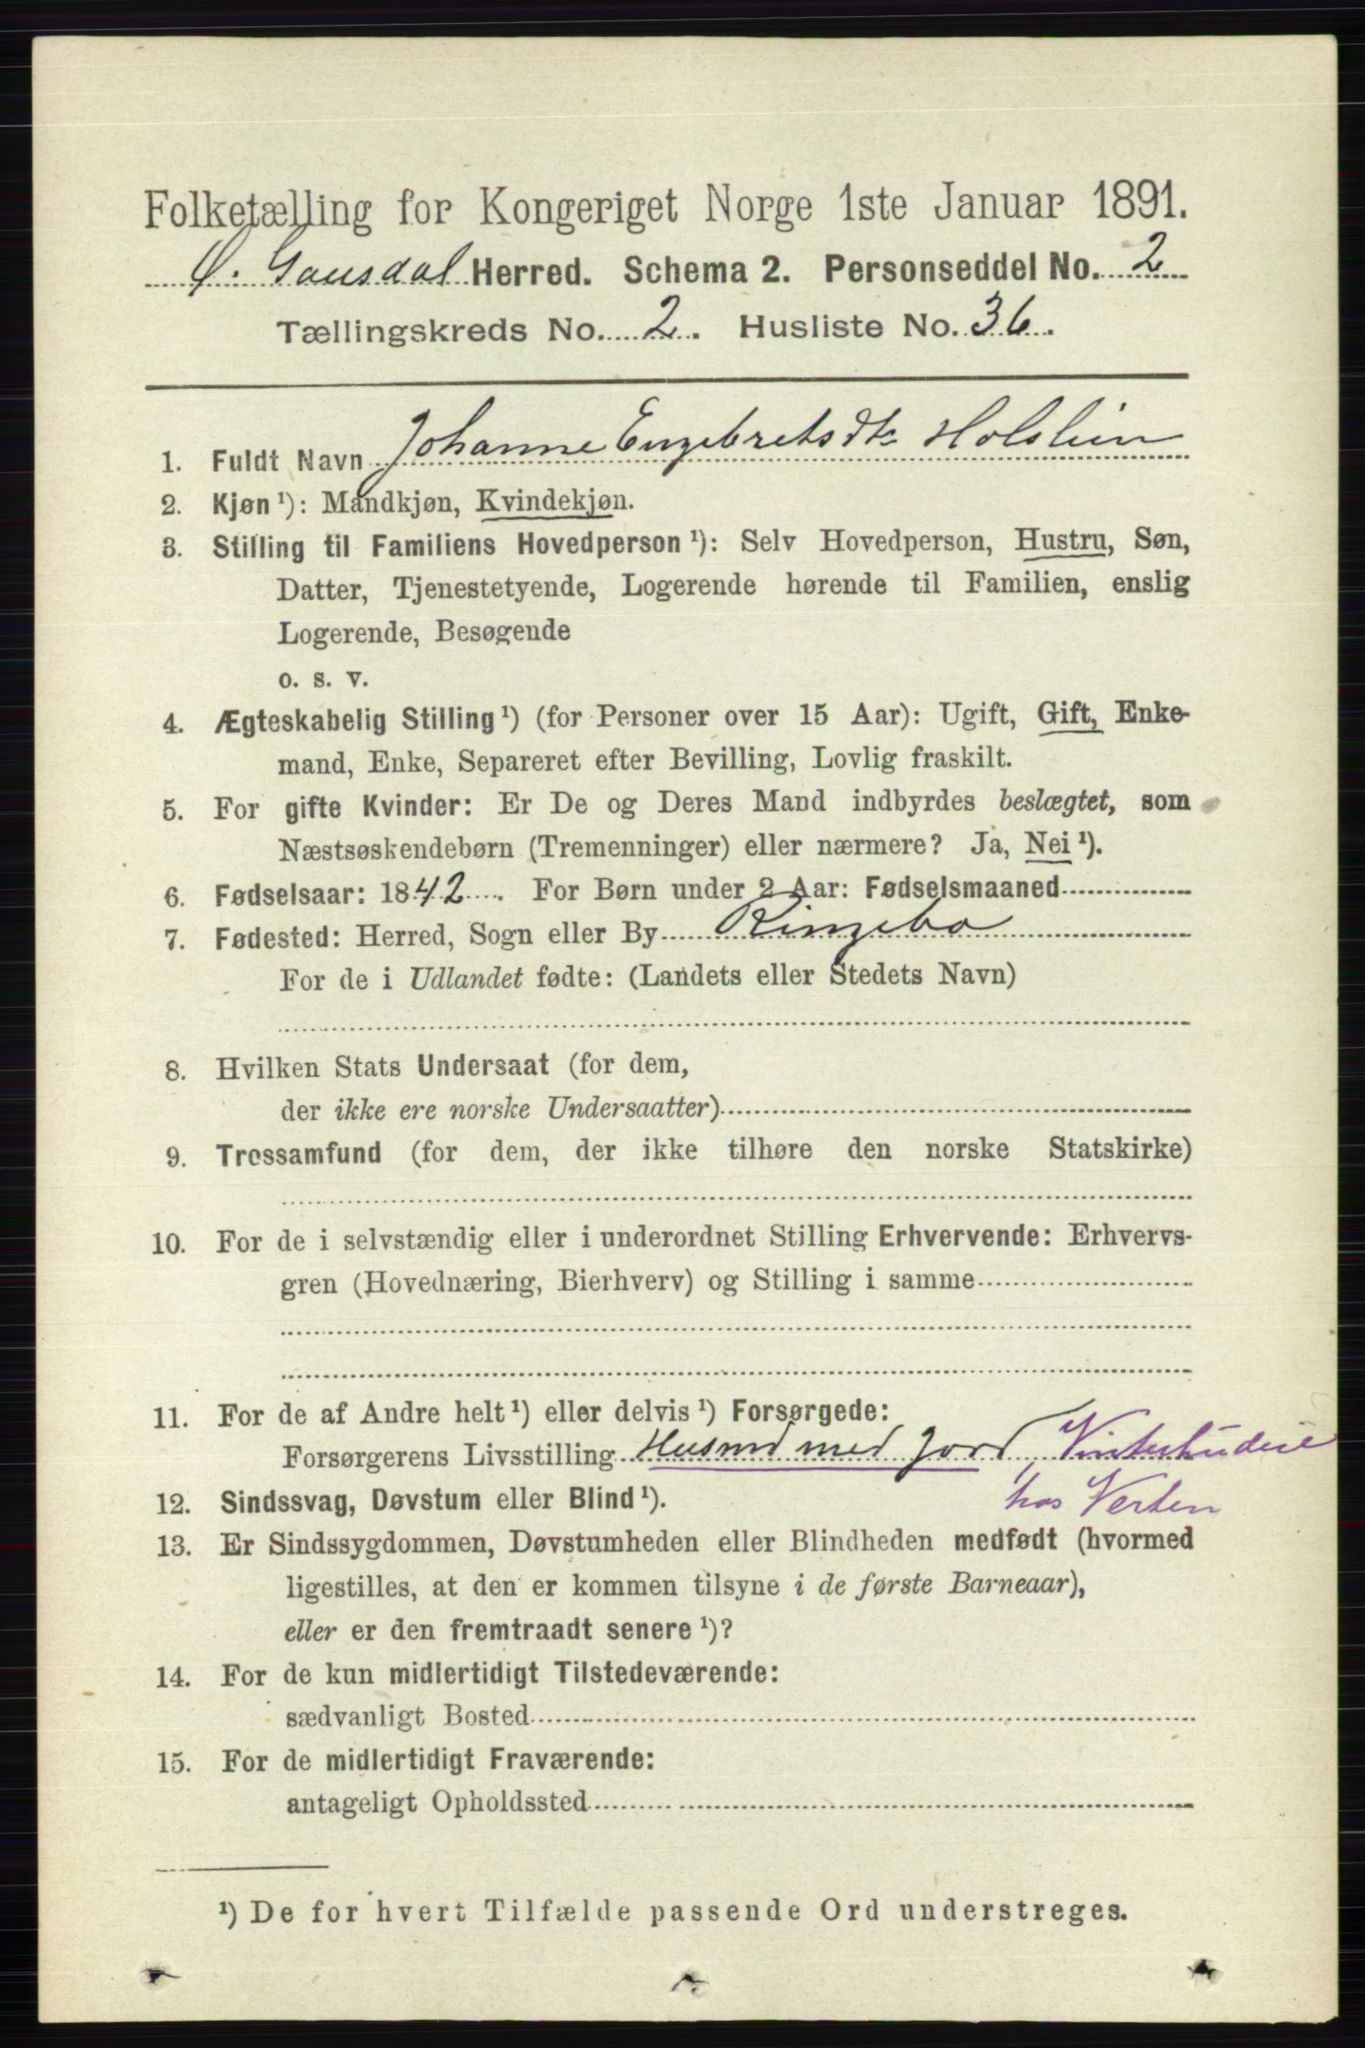 Folketælling for Kongeriget Norge 1ste Januar 1891.
Ø. Gausdal Herred. Schema 2. Personseddel No. 2
Tællingskreds No. 2. Husliste No. 36.
1. Fuldt Navn Johanne Engebretsdtr Holslien
2. Kjøn ¹): Mandkjøn, Kvindekjøn.
3. Stilling til Familiens Hovedperson ¹): Selv Hovedperson, Hustru, Søn,
Datter, Tjenestetyende, Logerende hørende til Familien, enslig
Logerende, Besøgende
o. s. v.
4. Ægteskabelig Stilling ¹) (for Personer over 15 Aar): Ugift, Gift, Enke-
mand, Enke, Separeret efter Bevilling, Lovlig fraskilt.
5. For gifte Kvinder: Er De og Deres Mand indbyrdes beslægtet, som
Næstsøskendebørn (Tremenninger) eller nærmere? Ja, Nei ¹).
6. Fødselsaar: 1842. For Børn under 2 Aar: Fødselsmaaned
7. Fødested: Herred, Sogn eller By Ringebo
For de i Udlandet fødte: (Landets eller Stedets Navn)
8. Hvilken Stats Undersaat (for dem,
der ikke ere norske Undersaatter)
9. Trossamfund (for dem, der ikke tilhøre den norske Statskirke)
10. For de i selvstændig eller i underordnet Stilling Erhvervende: Erhvervs-
gren (Hovednæring, Bierhverv) og Stilling i samme
11. For de af Andre helt ¹) eller delvis ¹) Forsørgede:
Forsørgerens Livsstilling Husmd med Jord, Vinterbudeie
hos Verten
12. Sindssvag, Døvstum eller Blind ¹).
13. Er Sindssygdommen, Døvstumheden eller Blindheden medfødt (hvormed
ligestilles, at den er kommen tilsyne i de første Barneaar),
eller er den fremtraadt senere ¹)?
14. For de kun midlertidigt Tilstedeværende:
sædvanligt Bosted
15. For de midlertidigt Fraværende:
antageligt Opholdssted
¹) De for hvert Tilfælde passende Ord understreges.